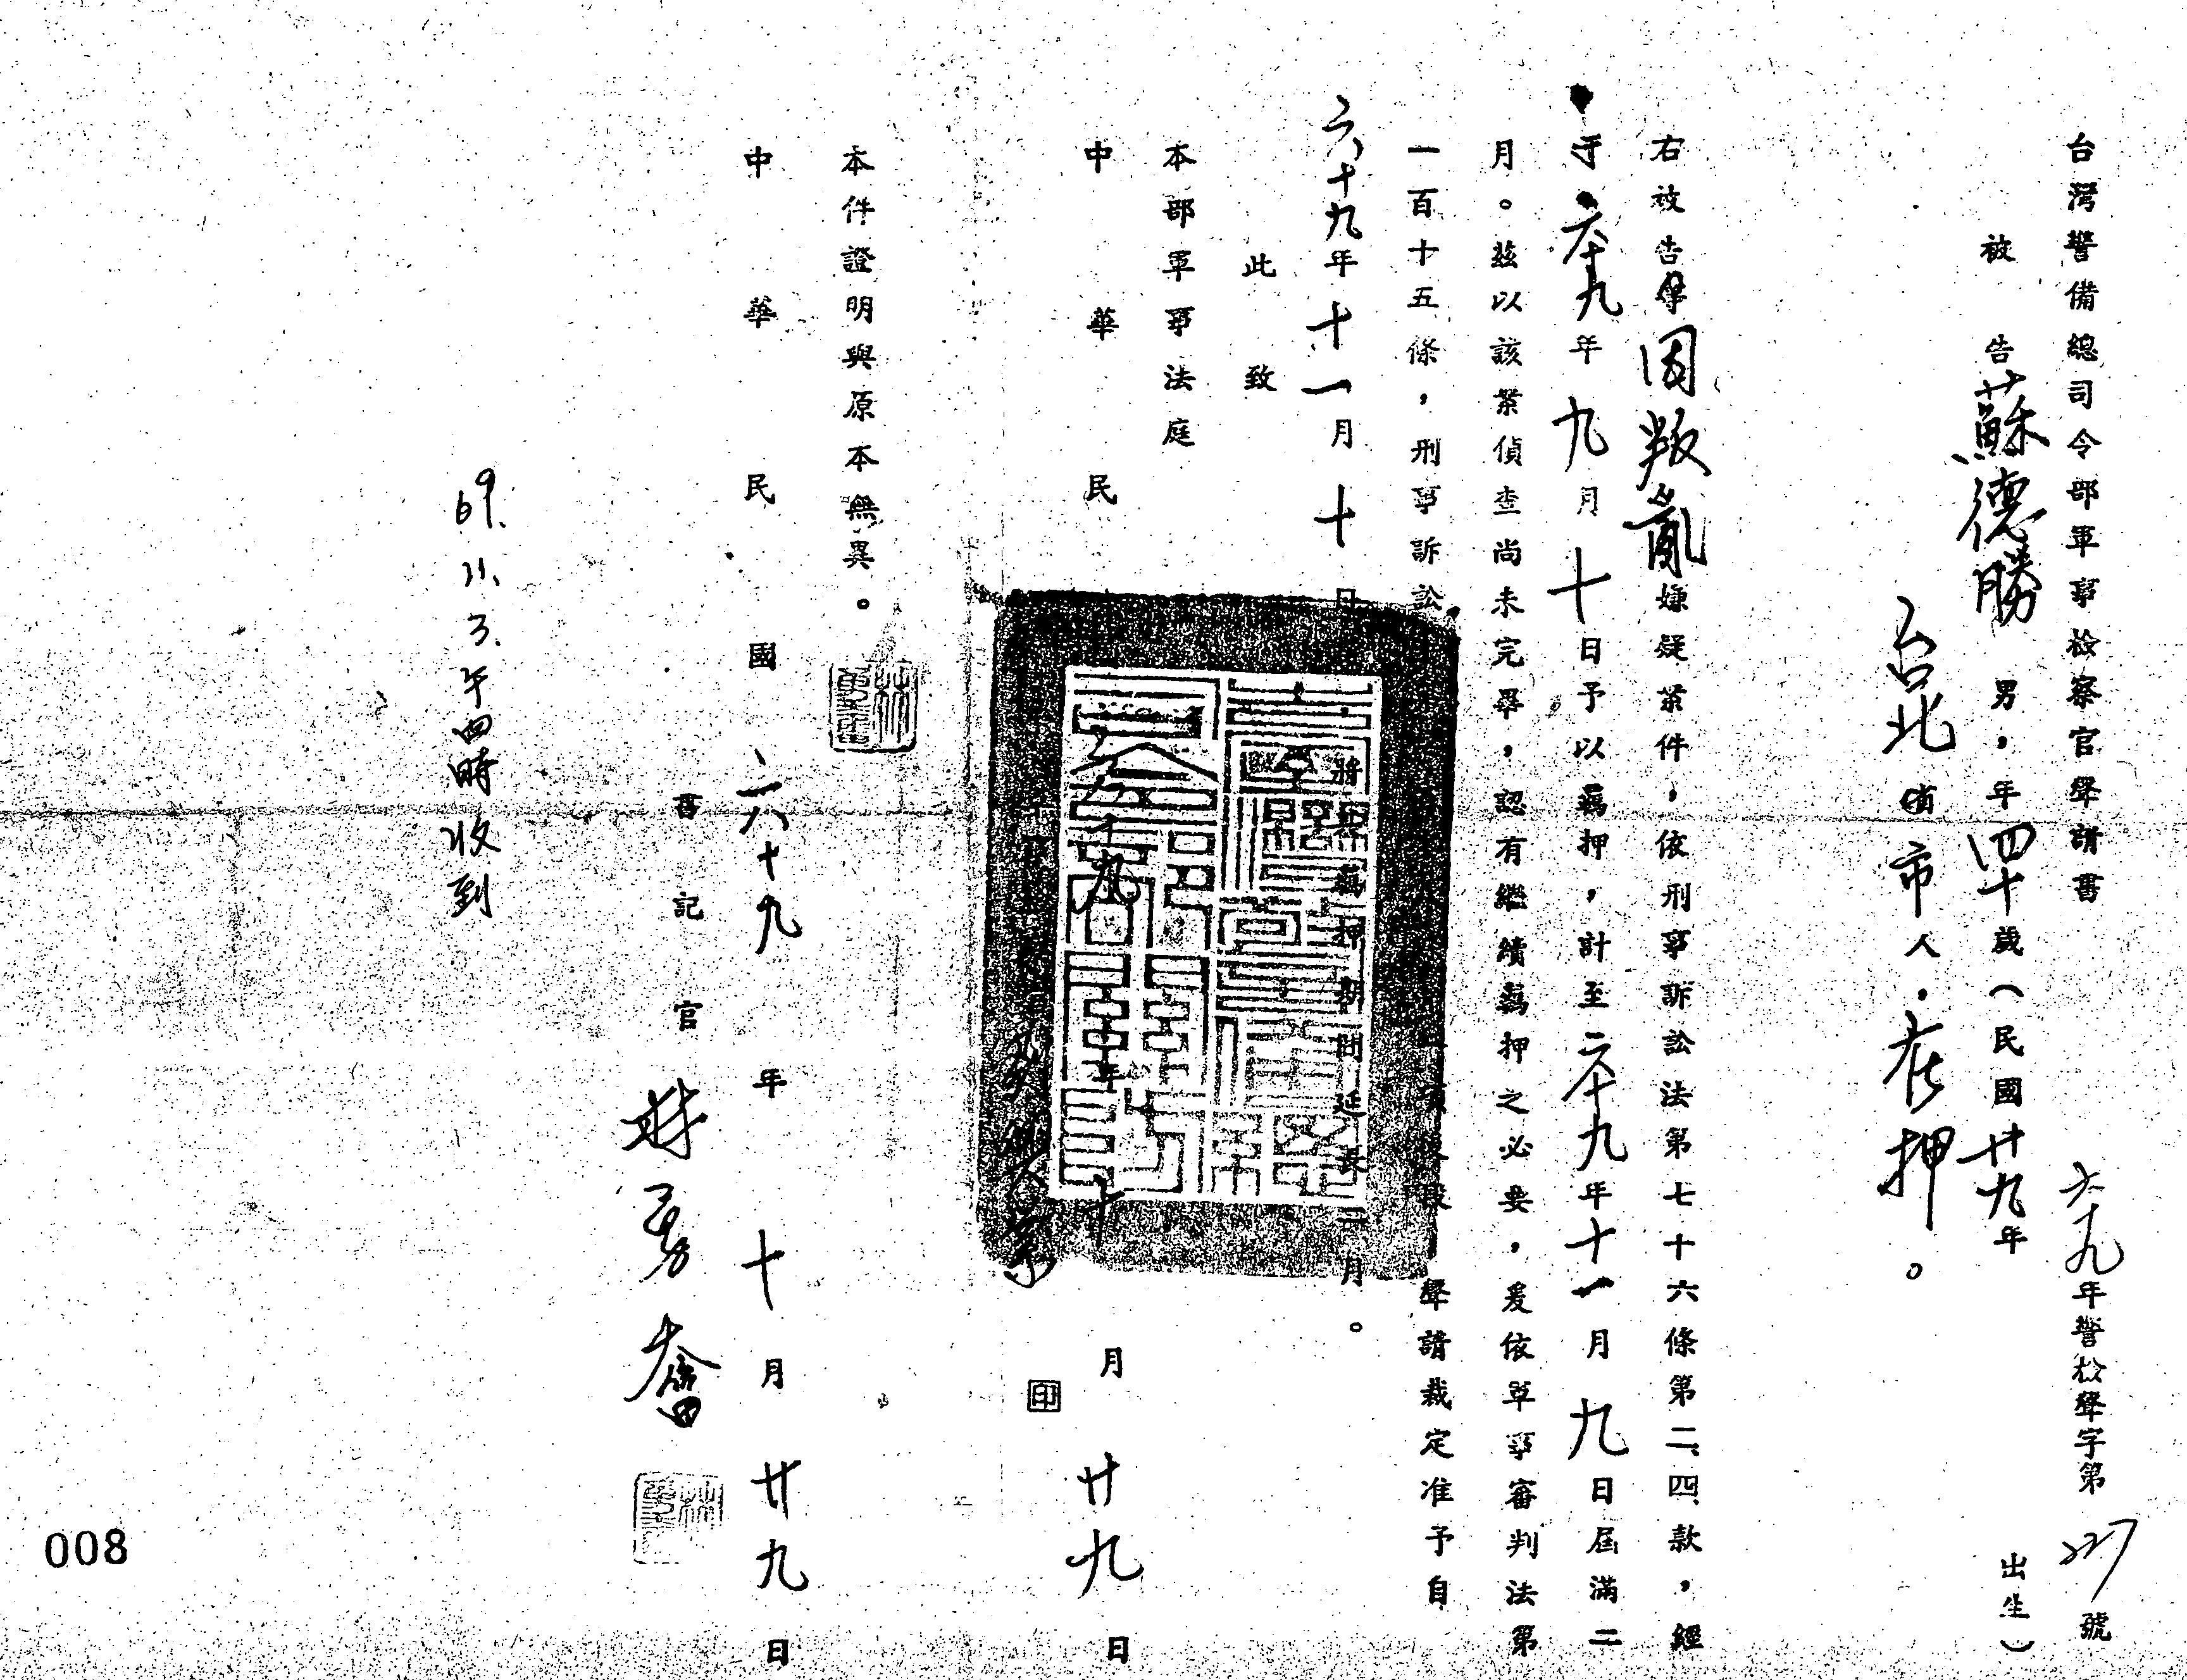 台灣警備總司令部軍事檢察官聲請書
六十九年警檢聲字第227號
被告蘇德勝 男,年四十歲(民國廿九年 出生)
台北市人,在押。
右被告因叛亂嫌疑案件,依刑事訴訟法第七十六條第二、四、款,經
于六十九年九月十日予以羈押,計至六十九年十一月九日屆滿二
月。茲以該案偵查尚未完畢,認有繼續羈押之必要,爰依軍事審判法第
一百十五條,刑事訴訟 後段 聲請裁定准予自
六十九年十一月十日 將羈押期間延長二月。
此致
本部軍事法庭
中華民 六十九年十月廿九日
印
本件證明與原本無異。
中華民國六十九年十月廿九日
書記官 林勇奮
69.11.3.午四時收到
008